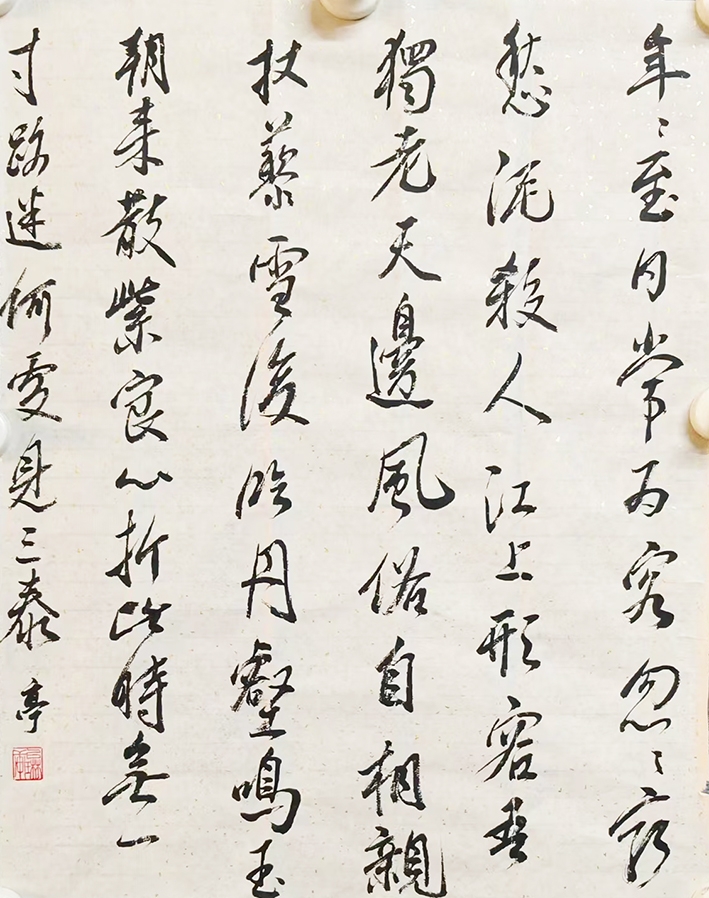 年〻至日常为客忽〻窮
愁泥殺人江上形容吾
獨老天邊風俗自相親
杖藜雪後临丹壑鳴玉
朝来散紫宸心折此時無一
寸路迷何處見三秦 亭